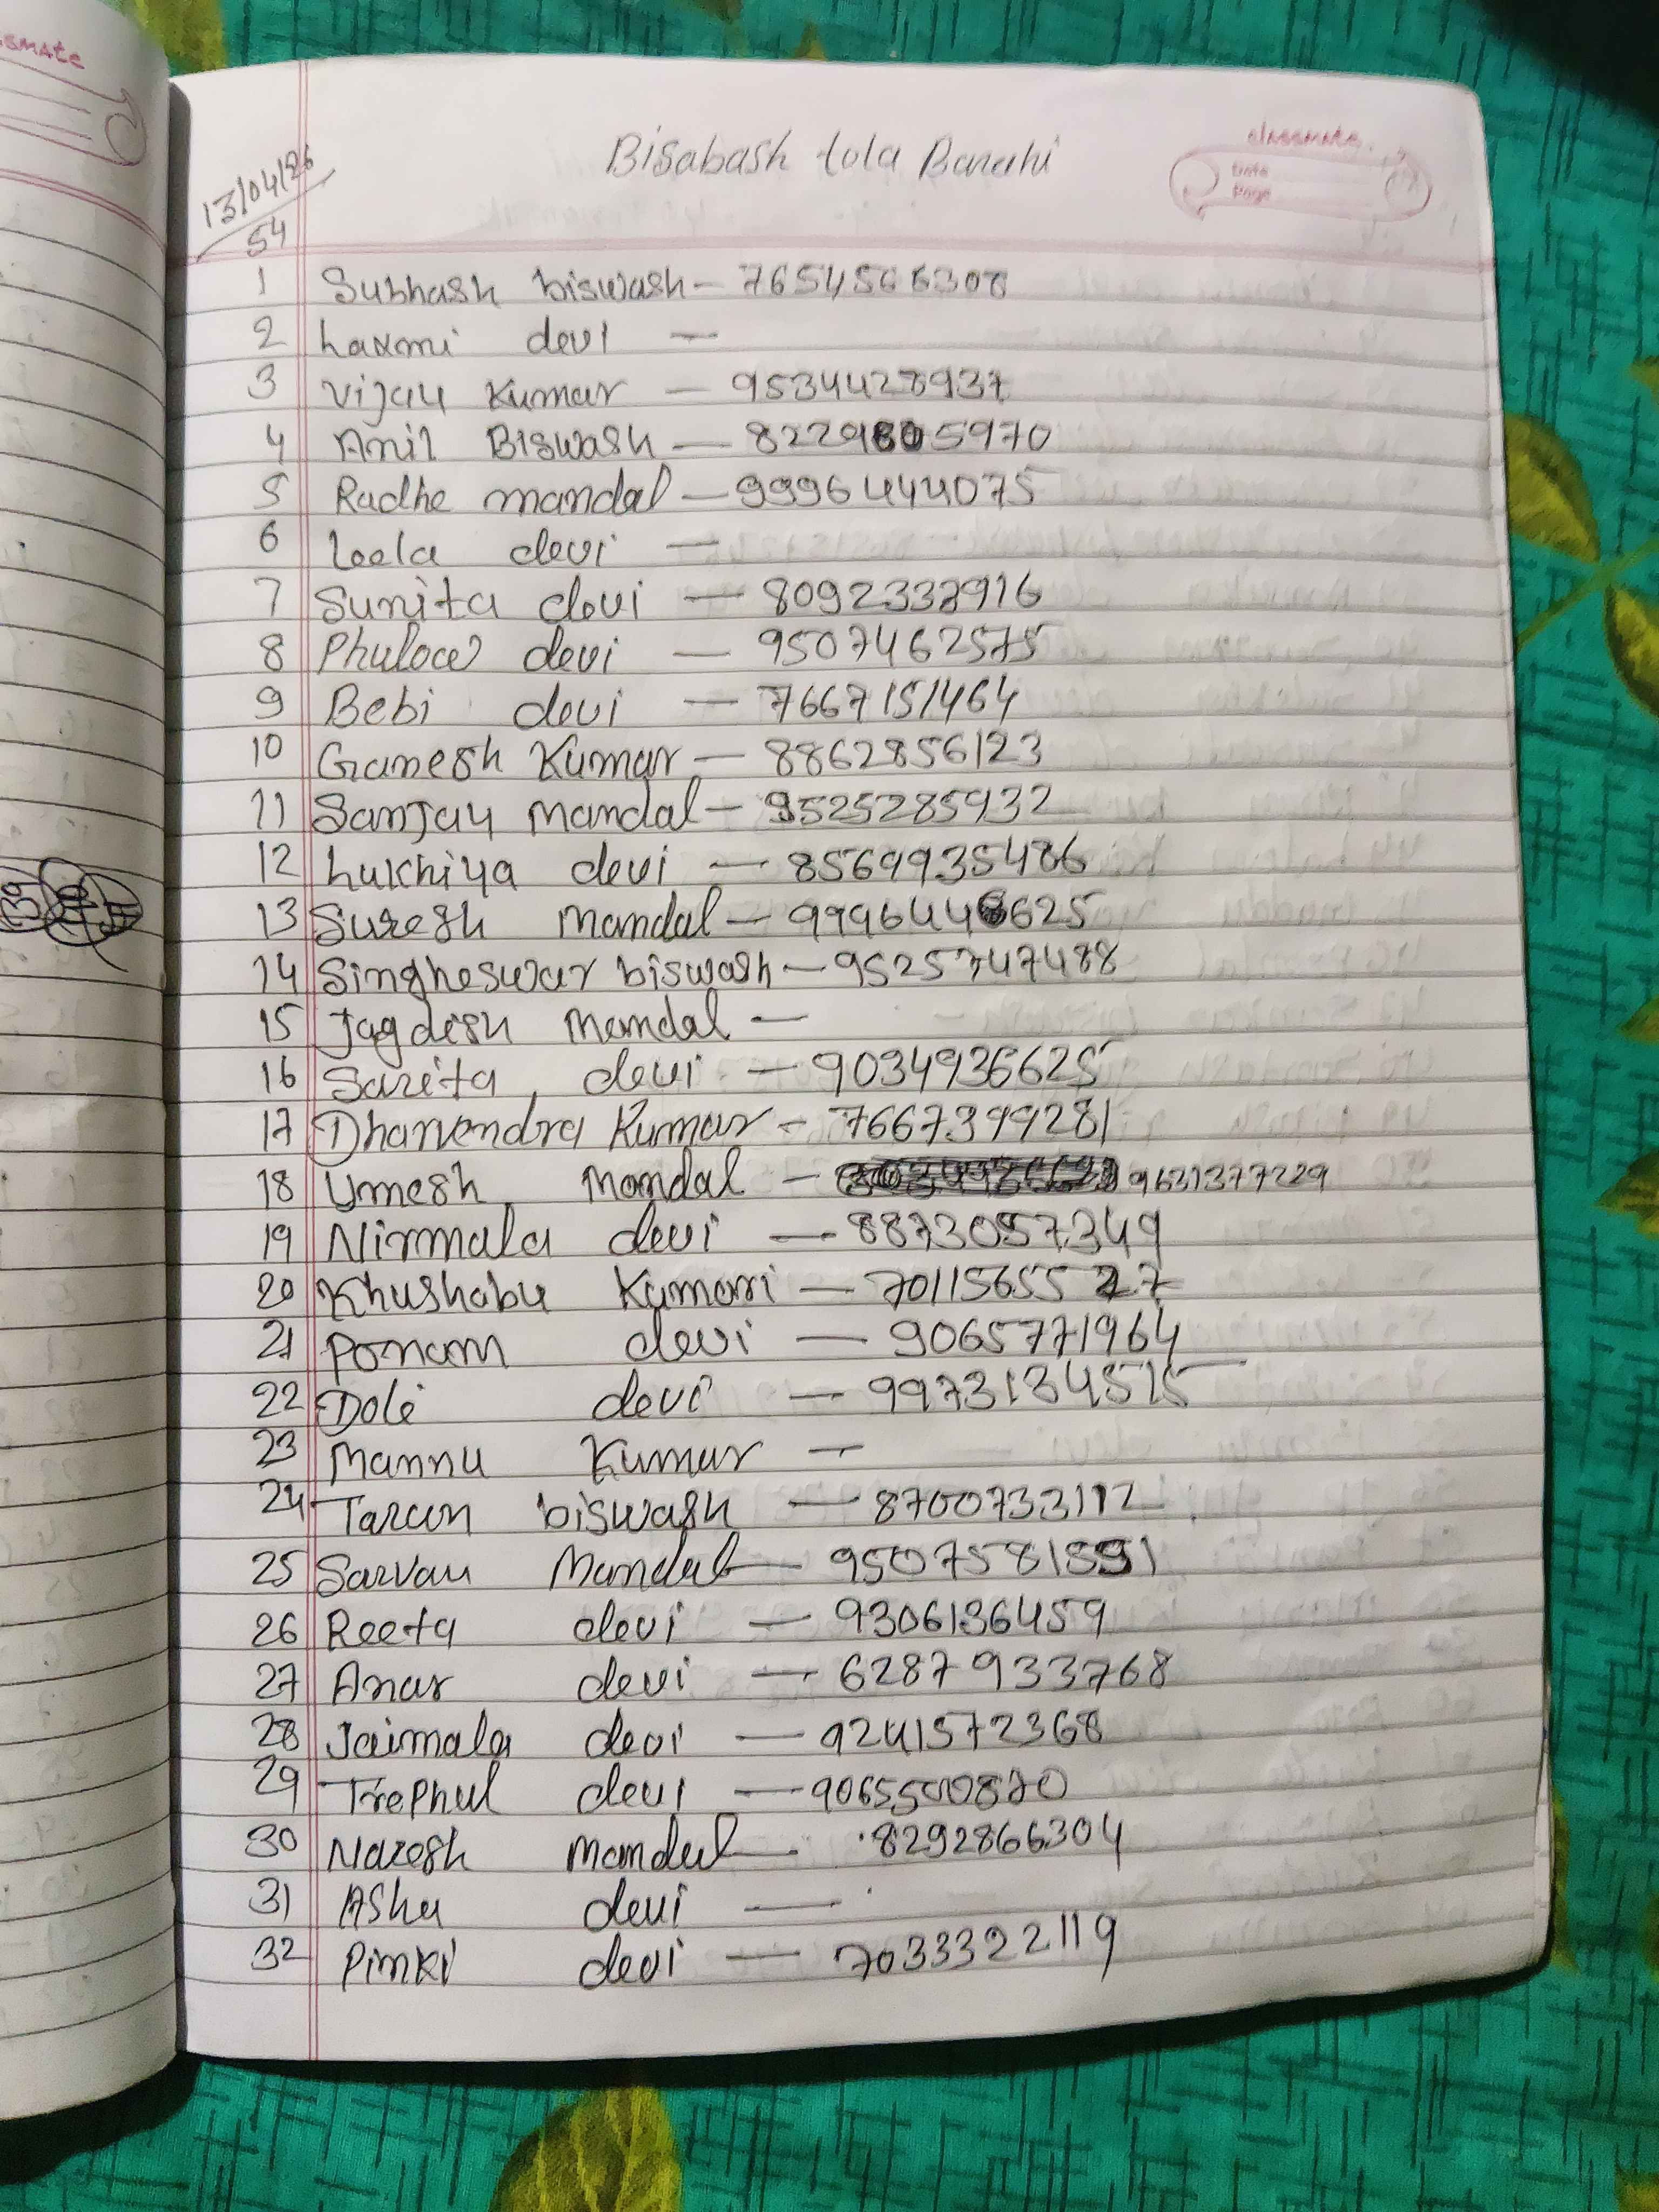 classmate
Bisabash tola Barahi
classmate
Date
Page
13/04/26
54
1 Subhash biswash - 7654566308
2 Laxmi devi -
3 Vijay Kumar - 9534428937
4 Anil Biswash - 8229805970
5 Radhe mandal - 9996444075
6 Leela devi -
7 Sunita devi - 8092337916
8 Phulow devi - 9507462575
9 Bebi devi - 7667151464
10 Ganesh Kumar - 8862856123
11 Sanjay Mandal - 9525285932
12 Lukhiya devi - 8569935486
13 Suresh Mandal - 9996448625
14 Singheswar biswash - 9525747488
15 Jagdesh Mandal -
16 Sarita devi - 9034936625
17 Dharvendra Kumar - 7667399281
18 Umesh Mandal - 9631377229
19 Nirmala devi - 8873057349
20 Khushabu Kumari - 7011565527
21 Ponam devi - 9065771964
22 Doli devi - 9973134515
23 Mannu Kumar -
24 Tarun biswash - 8700733112
25 Sarvan Mandal - 9507581891
26 Reeta devi - 9306136459
27 Anar devi - 6287933768
28 Jaimala devi - 9241572368
29 Trephul devi - 9065500870
30 Naresh Mandal - 8292866304
31 Asha devi -
32 Pinki devi - 7033322119